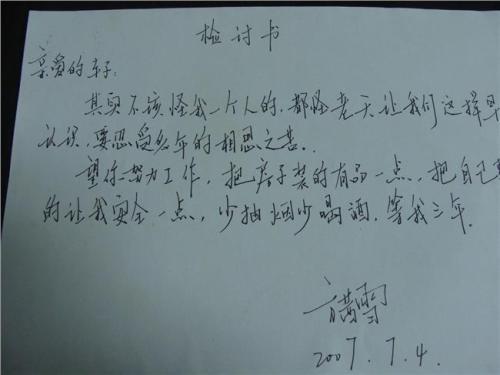 检讨书
亲爱的车子:
其实不该怪我一个人的,都怪老天让我们这样早
认识,要忍受多年的相思之苦..
望你努力工作,把房子装的有品一点,把自己
的让我安全一点,少抽烟少喝酒,等我三年.
2007.7.4.